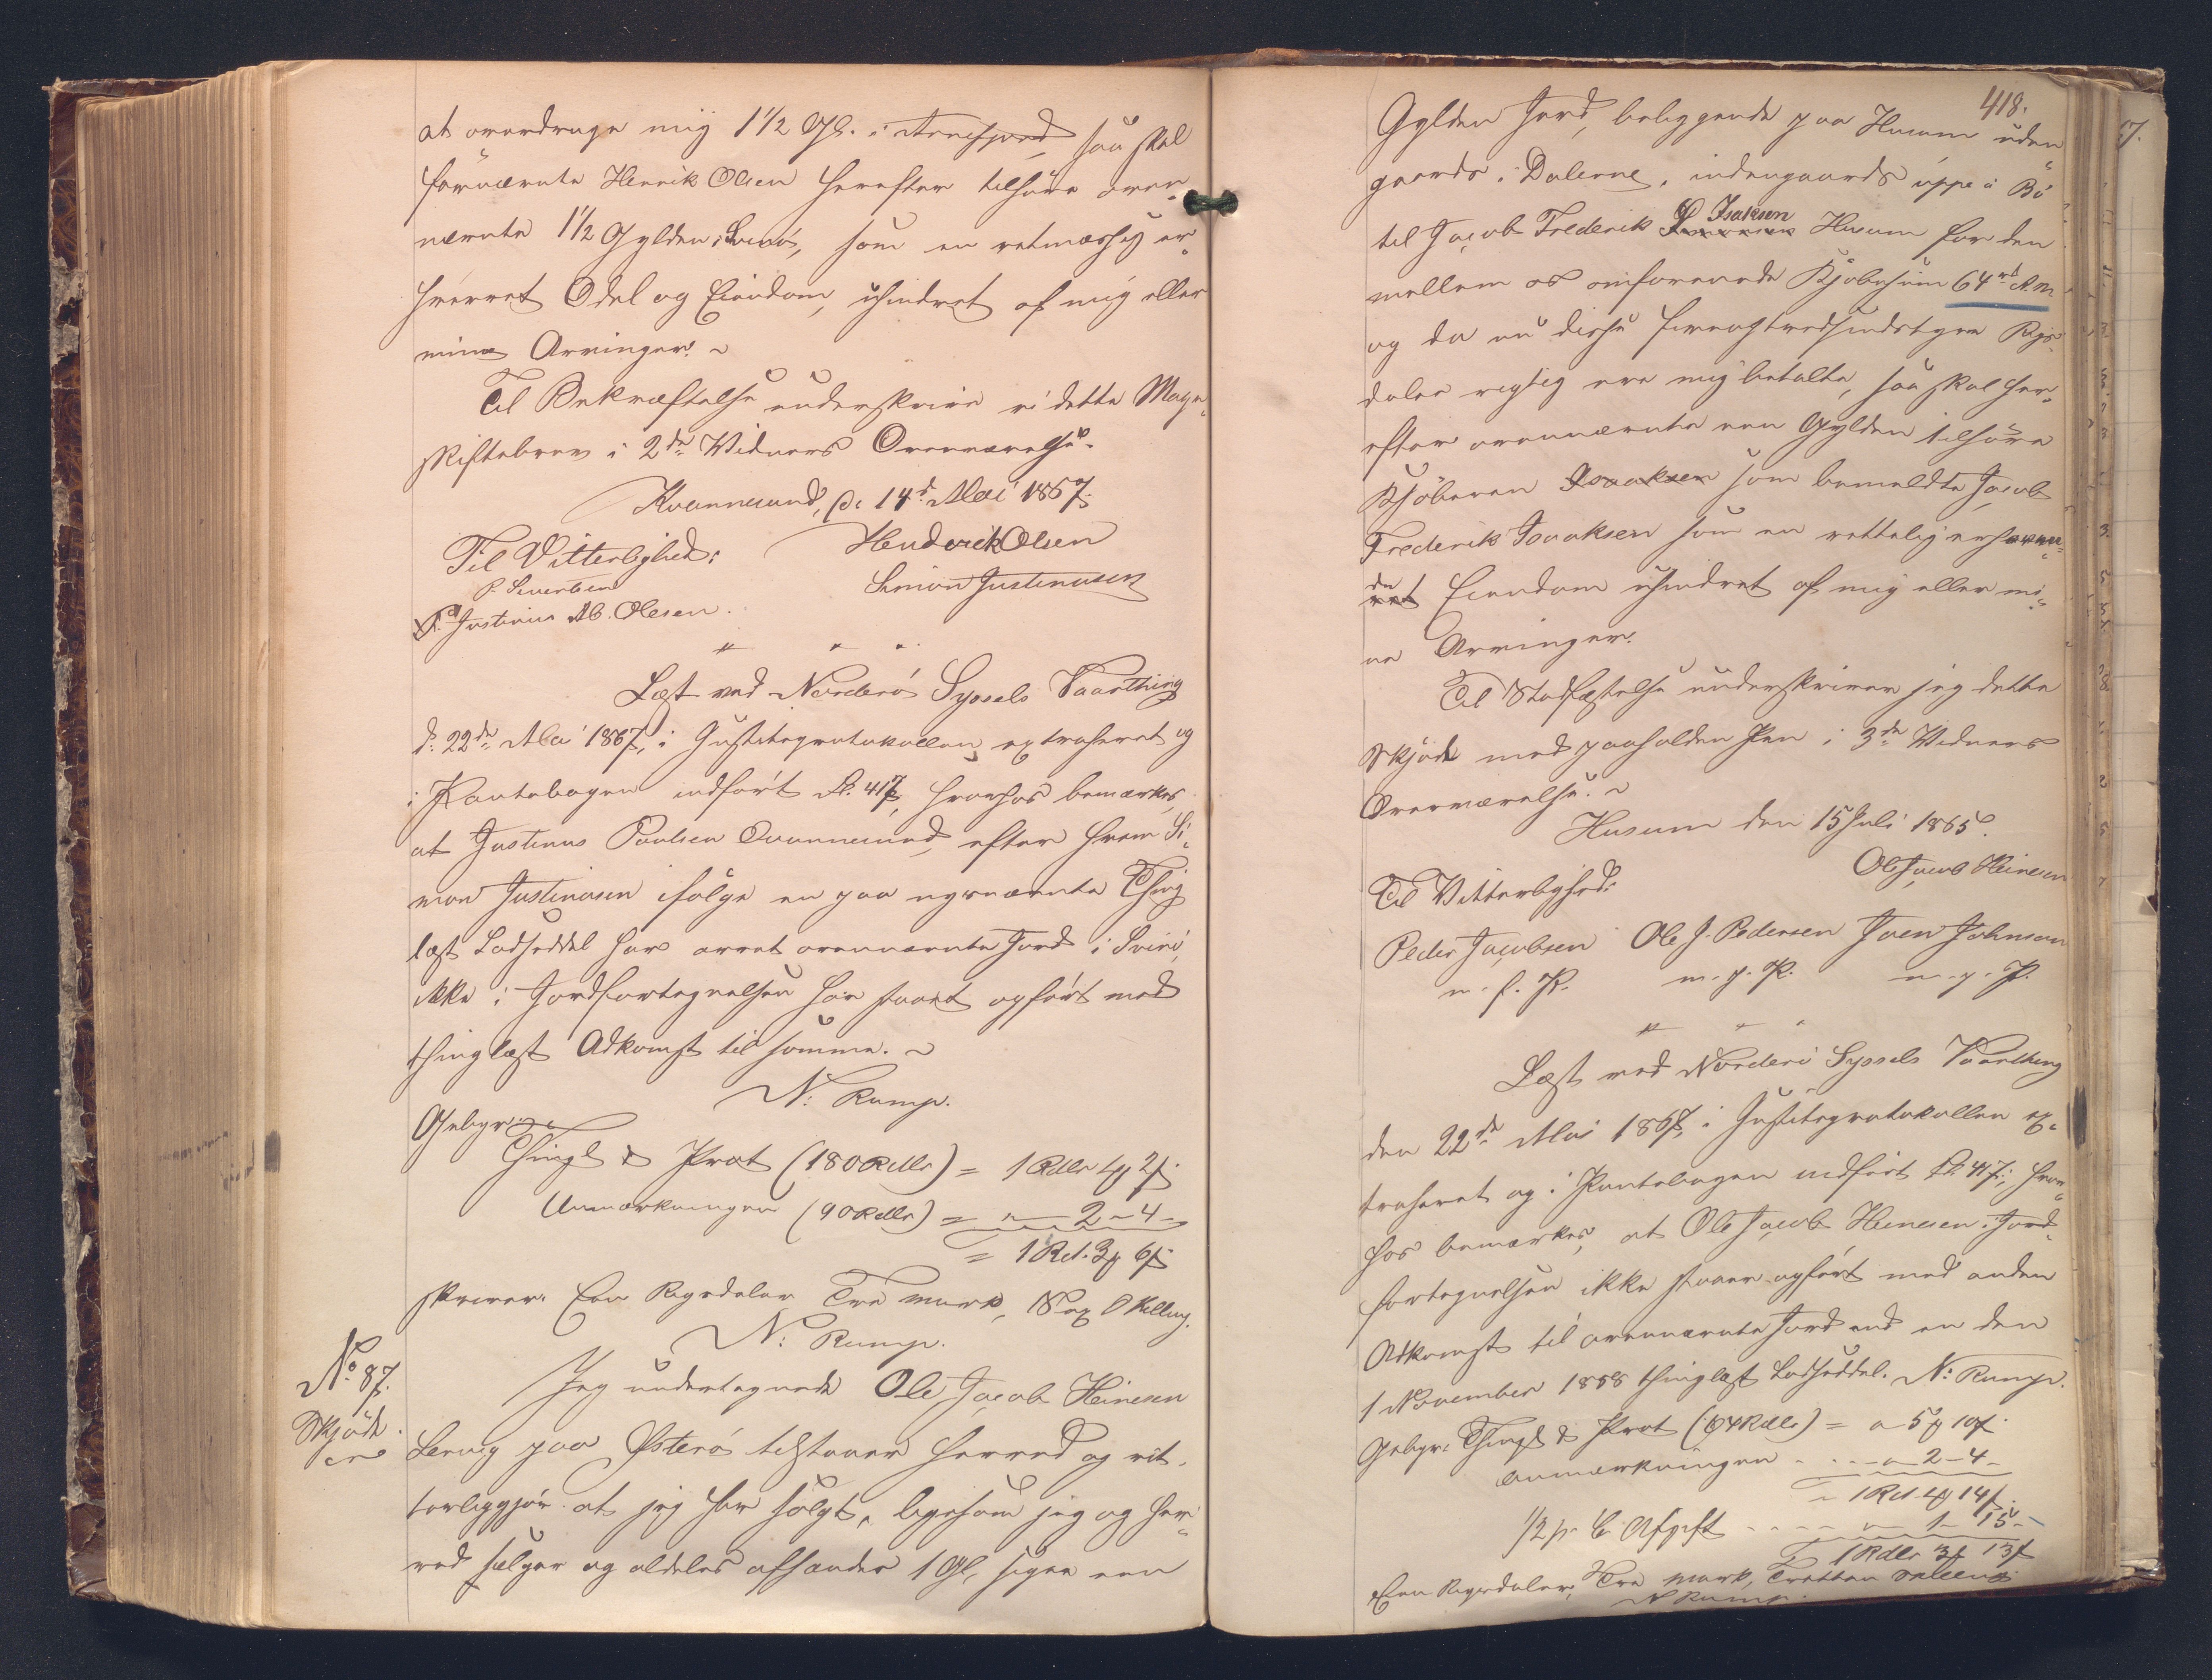 at overdrage mig 1½ Gl. i Arnefjord, saa skal
førnævnte Henrik Olsen herefter tilhøre oven-
nævnte 1½ Gylden i Svinö, som en retmæssig er-
hvervet Odel og Eiendom, uhindret af mig eller
mine Arvinger. ~
Til Bekræftelse underskrive vi dette Mage-
skiftebrev i 2de Vidners Overværelse.
Kvannesund, d. 14d Mai 1867.
Til Vitterlighed: Henderick Olsen
P. Sivertsen Simon Justinusen
Justinus Ab. Olesen.
Læst ved Norderö Syssels Vaarthing
d. 22de Mai 1867, i Justitsprotokollen extraheret og
i Pantebogen indført S. 417, hvorhos bemærkes,
at Justinus Poulsen Qvannesund, efter hvem Si-
mon Justinusen ifølge en paa nysnævnte Thing
læst Lodseddel har arvet ovennævnte Jord i Svinö,
ikke i Jordfortegnelsen har staaet opført med
thinglæst Adkomst til samme. ~
N: Rump.
Gebyr:
Thingl & Prot (180 Rdlr) = 1 Rdlr 4 2 s.
Anmærkningen (90 Rdlr) = " 2 - 4 -
= 1 Rd. 3 6 s
skriver: Een Rigsdaler Tre Mark, Sex Skilling.
N: Rump.
No 87.
Skjöde
Jeg undertegnede Ole Jacob Heinesen
Lervig paa Østerö tilstaaer herved og vit-
terliggjör at jeg har solgt, ligesom jeg og her-
ved sælger og aldeles afhænder 1 Gl, siger een
418.
Gylden Jord, beliggende paa Husum uden
gaards i Dalerne, indengaards uppe i Bö
til Jacob Frederik Isaksen Husum for den
mellem os omforenede Kjöbesum 64 rd R.M.
og da nu disse fireogtredsindstyve Rigs-
daler rigtig ere mig betalte, saa skal her-
efter ovennævnte een Gylden tilhöre
Kjöberen Isaaksen som bemeldte Jacob
Frederik Isaaksen som en rettelig erhverve-
det Eiendom uhindret af mig eller mi-
ne Arvinger.
Til Stadfæstelse underskriver jeg dette
Skjöde med paaholden Pen i 3de Vidners
Overværelse. ~
Husum den 15 Juli 1865.
Ole Jacob Heinesen
Til Vitterlighed:
Peder Jacobsen Ole J. Pedersen Joen Johnson
m. f. P. m. p. P. m. p. P.
Læst ved Norderö Syssels Vaarthing
den 22de Mai 1867, i Justitsprotokollen ex-
traheret og i Pantebogen indført S. 417, hvor-
hos bemærkes, at Ole Jacob Heinesen i Jord-
fortegnelsen ikke staaer opført med anden
Adkomst til ovennævnte Jord end en den
1 November 1858 thinglæst Lodseddel. N: Rump.
Gebyr: Thingl & Prot (64 Rdlr) = " 5 10 s.
Anmærkningen - - - " 2 - 4 -
= 1 Rd. 4 14 s.
½ p. C. Afgift - - - - " 1 - 15 -
1 Rdlr 3 13 s
Een Rigsdaler, Tre Mark, Tretten Skilling
N Rump.